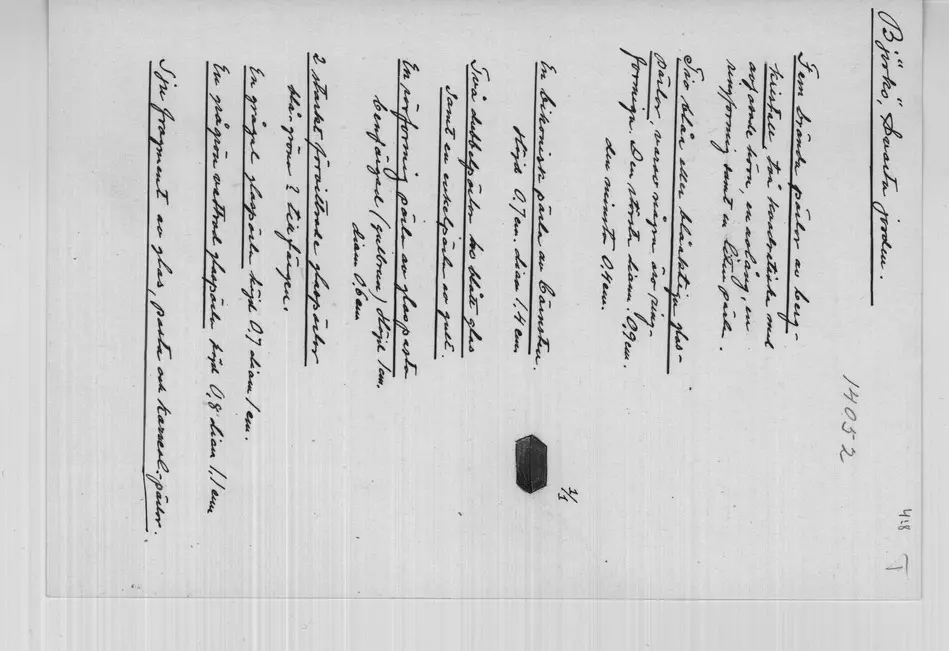 Björkö, Svarta jorden.
14052
4:8
Fem brända pärlor av berg-
kristall, två kantställda med
avfasade hörn, en avlång, en
ringformig samt en liten pärla.
Två blåa eller blåaktiga glas-
pärlor, varav någon äro ring-
formiga. Den största diam. 0,9 cm.
den minsta 0,4 cm.
En bikonisk pärla av bärnsten.
Höjd 0,7 cm. diam 1,4 cm
1/1
Två dubbelpärlor av blått glas
samt en enkelpärla av gult.
En rörformig pärla av glaspasta
benfärgad (gulbrun) Höjd 1 cm.
diam 0,6 cm
2 starkt förvittrade glaspärlor
blå-gröna? till färgen.
En grågul glaspärla höjd 0,7 diam 1 cm.
En grågrön vittrad glaspärla höjd 0,8 diam 1,1 cm
Sju fragment av glas, pasta och karneol.-pärlor.